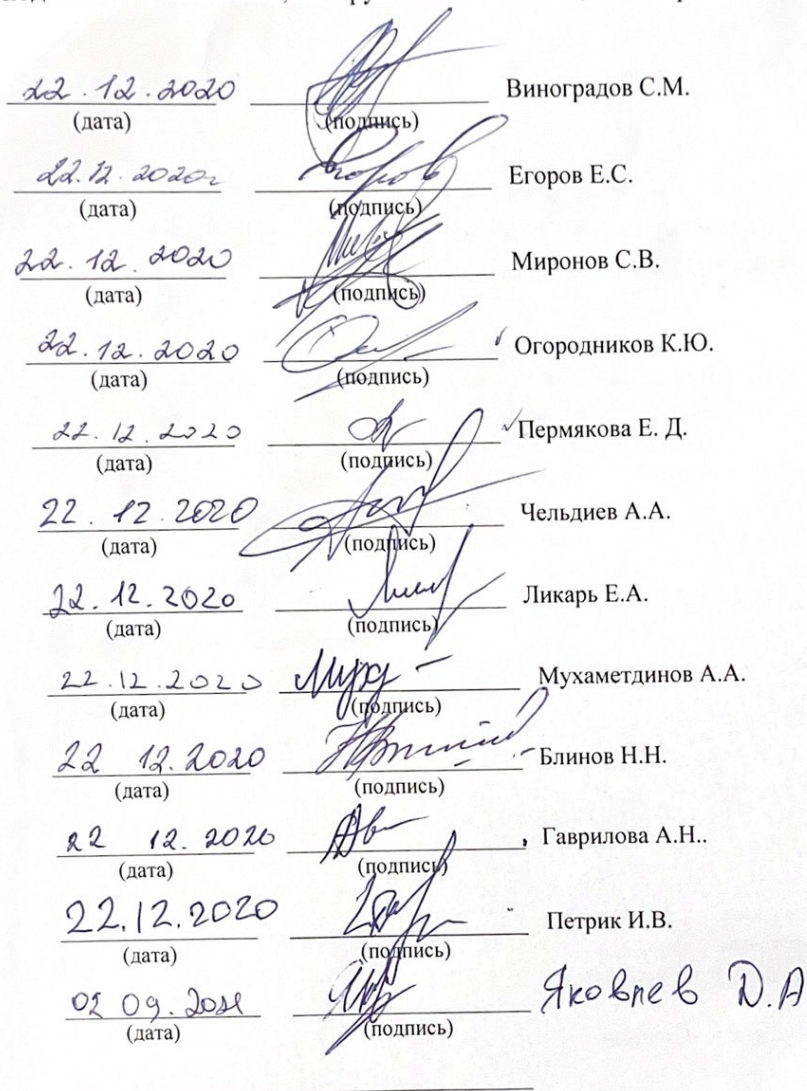 22.12.2020 Виноградов С.М.
(дата) (подпись)
22.12.2020г Егоров Егоров Е.С.
(дата) (подпись)
22.12.2020 Миронов С.В.
(дата) (подпись)
22.12.2020 Огородников К.Ю.
(дата) (подпись)
22.12.2020 Пермякова Е. Д.
(дата) (подпись)
22.12.2020 Чельдиев А.А.
(дата) (подпись)
22.12.2020 Ликарь Е.А.
(дата) (подпись)
22.12.2020 Мухаметдинов А.А.
(дата) (подпись)
22 12.2020 Блинов Н.Н.
(дата) (подпись)
22 12.2020 Гаврилова А.Н..
(дата) (подпись)
22.12.2020 Петрик И.В.
(дата) (подпись)
09. Яковлев Д.А
(дата) (подпись)